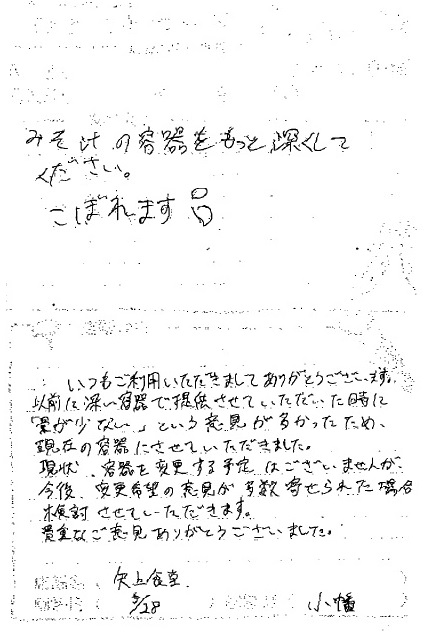 みそ汁の容器をもっと深くして
ください。
こぼれます
いつもご利用いただきましてありがとうございます。
以前に深い容器で提供させていただいた時に
「量が少ない」という意見が多かったため、
現在の容器にさせていただきました。
現状、容器を変更する予定はございませんが、
今後、変更希望の意見が多数寄せられた場合
検討させていただきます。
貴重なご意見ありがとうございました。
矢上食堂
5/28
小幡